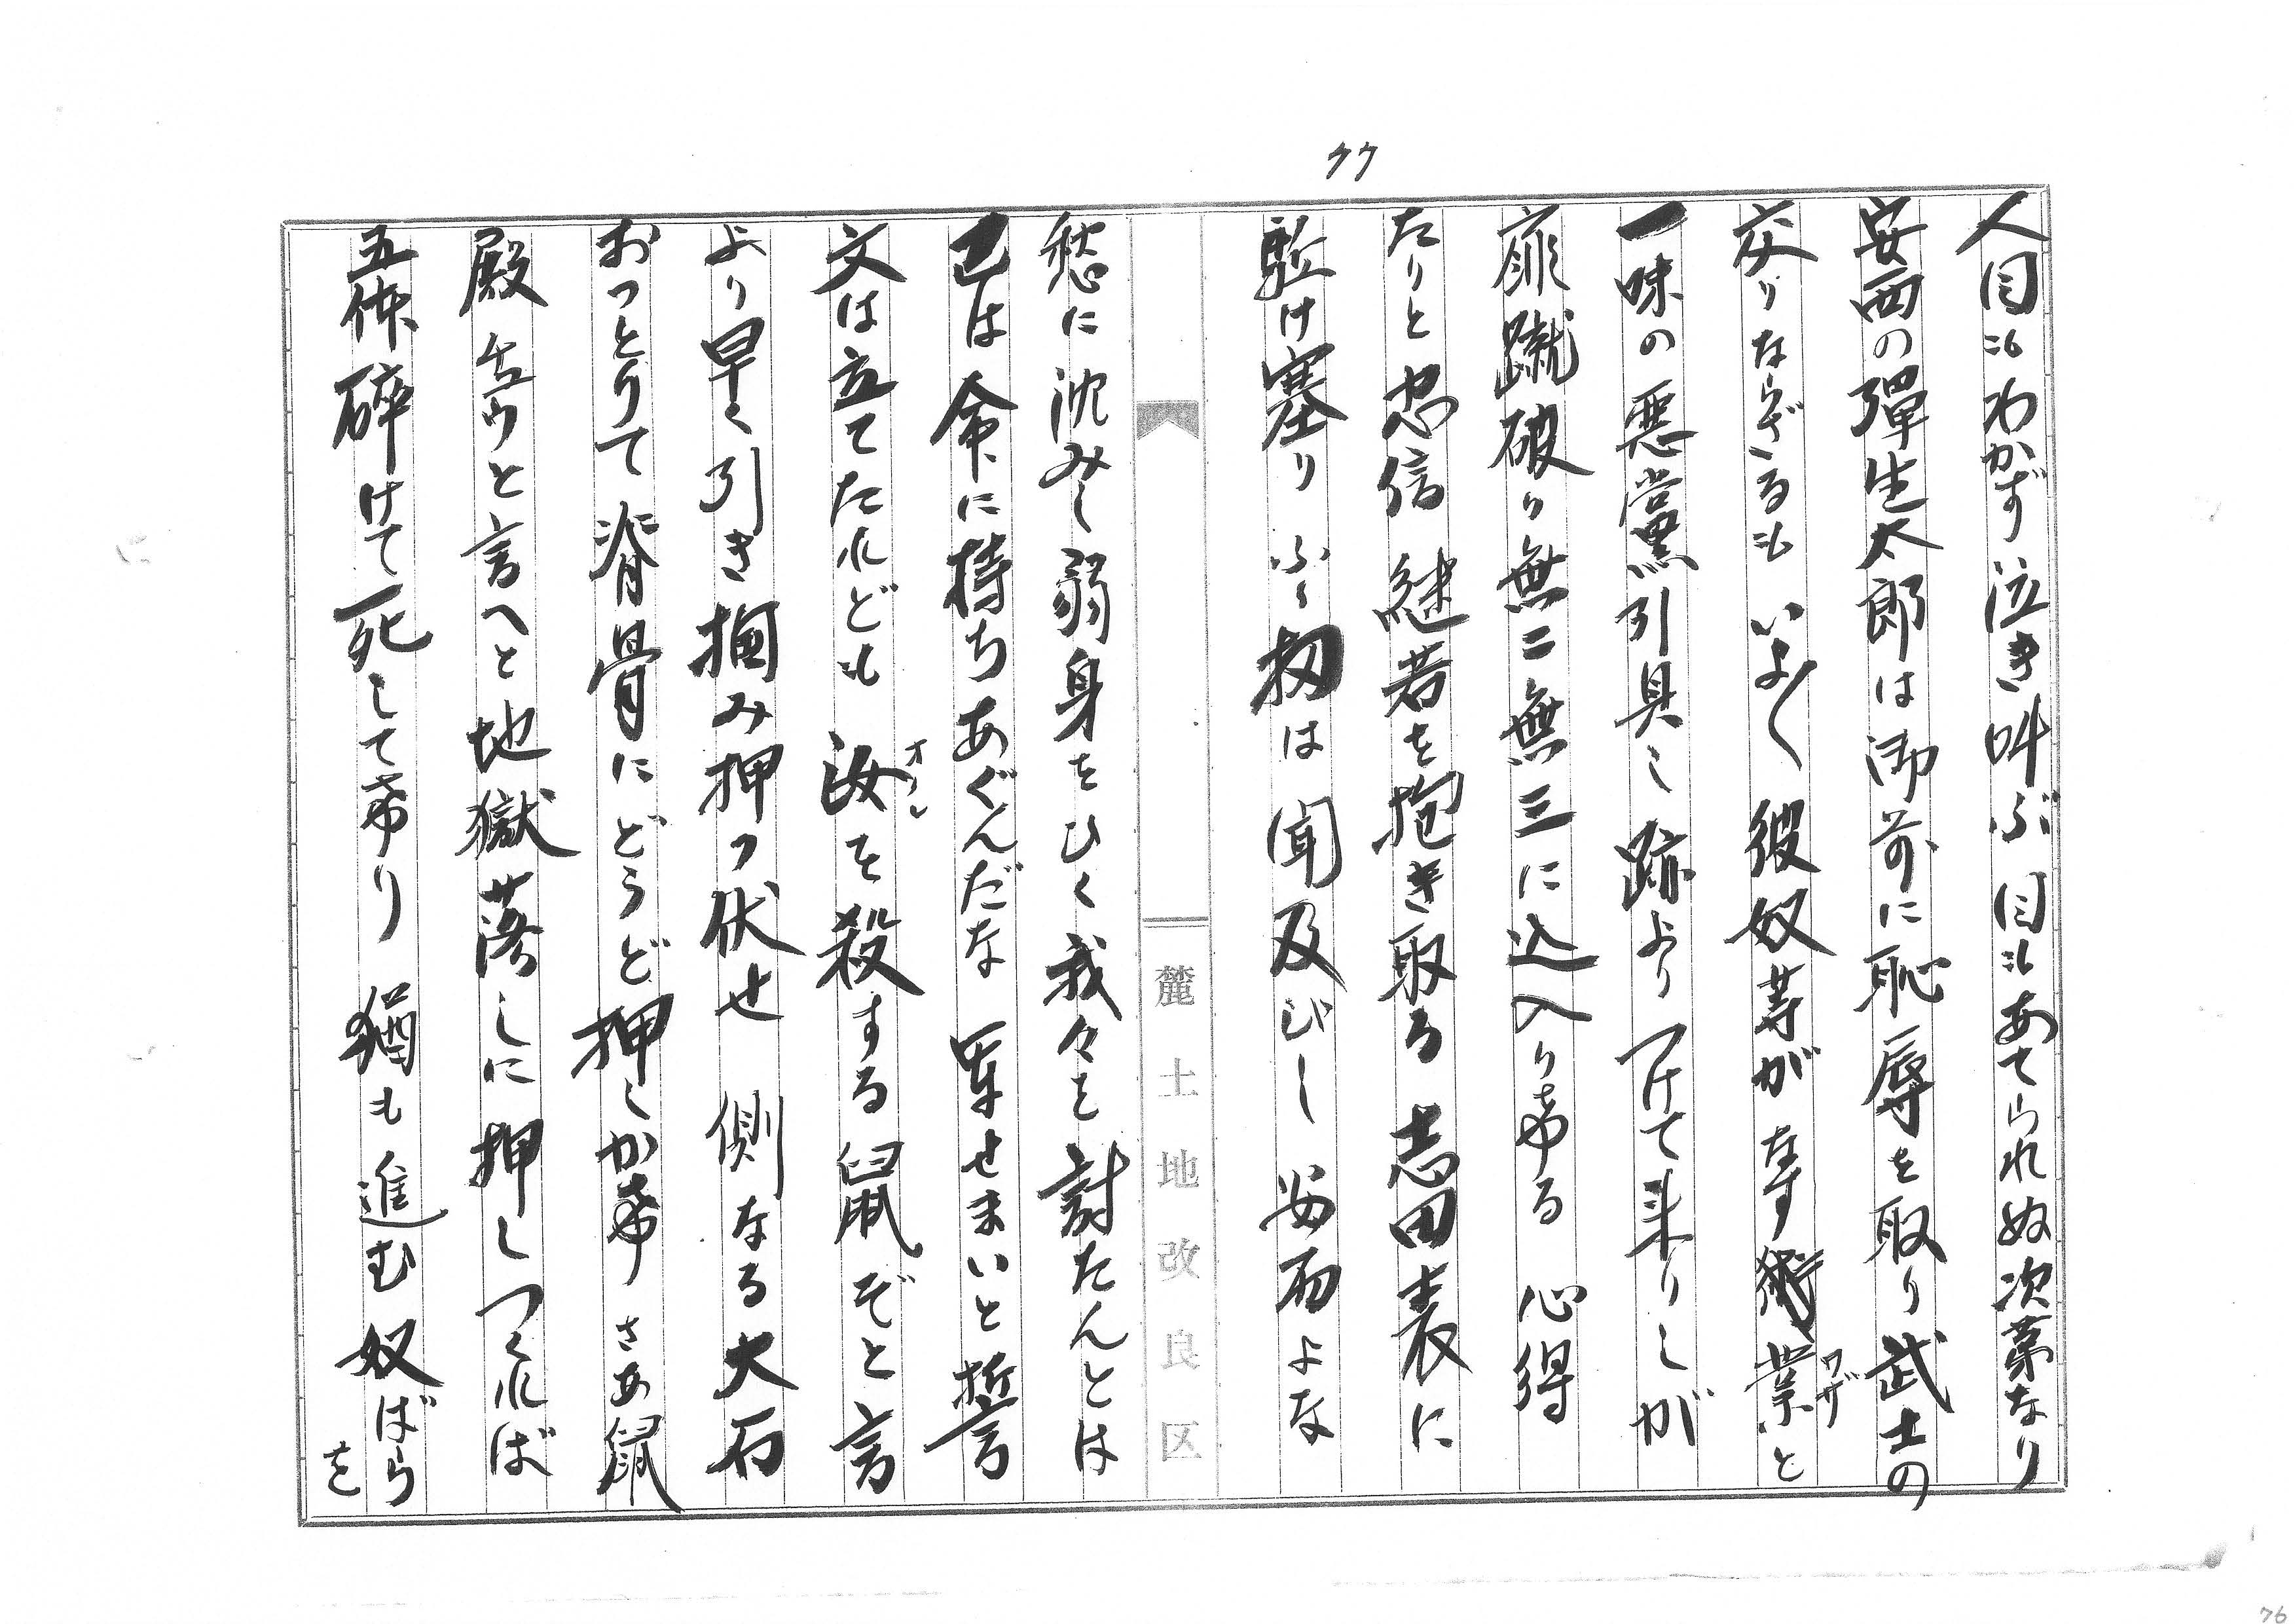 77
人目もわかず泣き叫ぶ目もあてられぬ次第なり
安西の彈生太郎は御前に恥辱を取り武士の
交りならざるもいよ〱彼奴等がなす業と
ワザ
一味の悪黨引具し跡よりつけて来りしが
扉蹴破り無二無三に込入り帝る 心得
たりと忠信 継若を抱き取る 志田表に
駈け塞りふゝ扨は聞及びし 安西よな
愁に沈みし弱身をひく我々を討たんとは
己は命に持ちあぐんだな 軍せまいと誓
文は立てたれども 汝を殺する鼠ぞと言
オノレ
より早く引き掴み押つ伏せ 側なる大石
おつとりて脊骨にどうど押しか帝 さあ鼠
殿 と言へと地獄落しに押しつくれば
五体碎けて死して帝り 猶も進む奴ばら
を
麓土地改良区
76